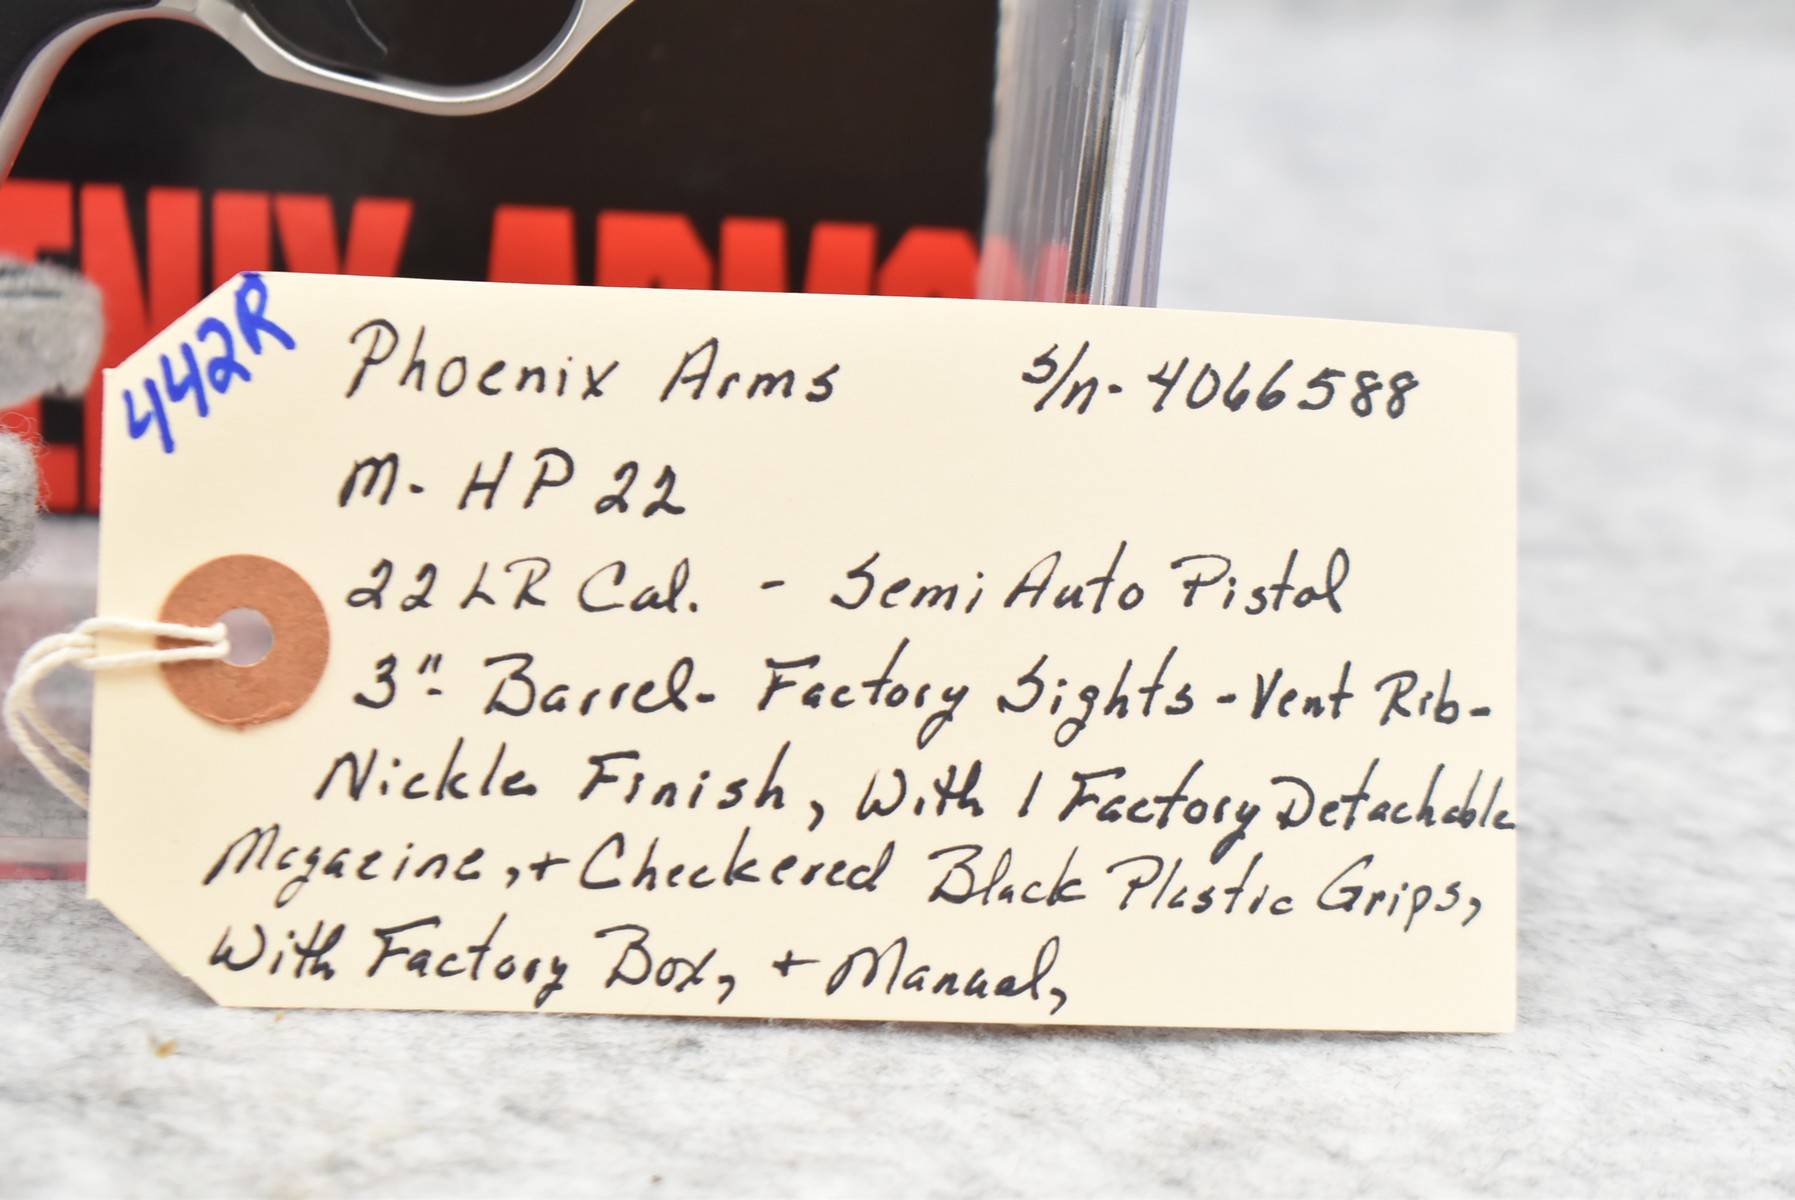 ENIX ARMS
442R
Phoenix Arms S/n- 4066588
M- HP 22
22 LR Cal. - Semi Auto Pistol
3"- Barrel- Factory Sights - Vent Rib-
Nickle Finish, With 1 Factory Detachable
Magazine, + Checkered Black Plastic Grips,
With Factory Box, + Manual,